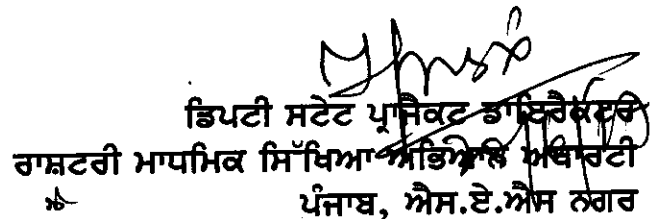 ਡਿਪਟੀ ਸਟੇਟ ਪ੍ਰਾਜੈਕਟ ਡਾਇਰੈਕਟਰ
ਰਾਸ਼ਟਰੀ ਮਾਧਮਿਕ ਸਿੱਖਿਆ ਅਭਿਆਨ ਅਥਾਰਟੀ
ਪੰਜਾਬ, ਐਸ.ਏ.ਐਸ ਨਗਰ